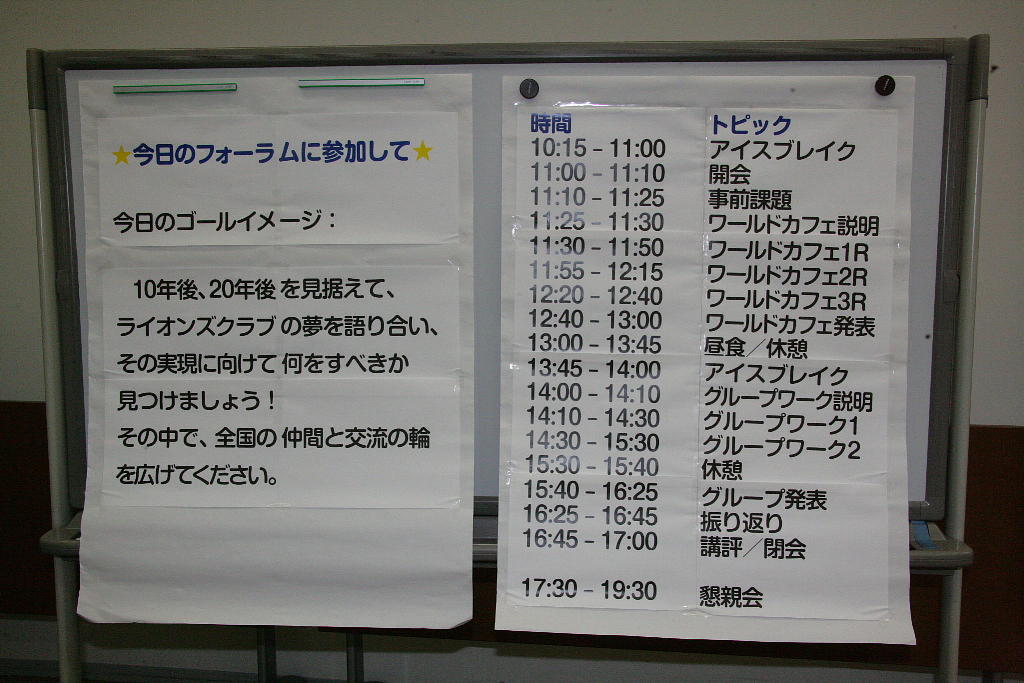 ★今日のフォーラムに参加して★
今日のゴールイメージ：
10年後、20年後を見据えて、
ライオンズクラブの夢を語り合い、
その実現に向けて何をすべきか
見つけましょう！
その中で、全国の仲間と交流の輪
を広げてください。
時間 トピック
10:15－11:00 アイスブレイク
11:00－11:10 開会
11:10－11:25 事前課題
11:25－11:30 ワールドカフェ説明
11:30－11:50 ワールドカフェ1R
11:55－12:15 ワールドカフェ2R
12:20－12:40 ワールドカフェ3R
12:40－13:00 ワールドカフェ発表
13:00－13:45 昼食／休憩
13:45－14:00 アイスブレイク
14:00－14:10 グループワーク説明
14:10－14:30 グループワーク1
14:30－15:30 グループワーク2
15:30－15:40 休憩
15:40－16:25 グループ発表
16:25－16:45 振り返り
16:45－17:00 講評／閉会
17:30－19:30 懇親会